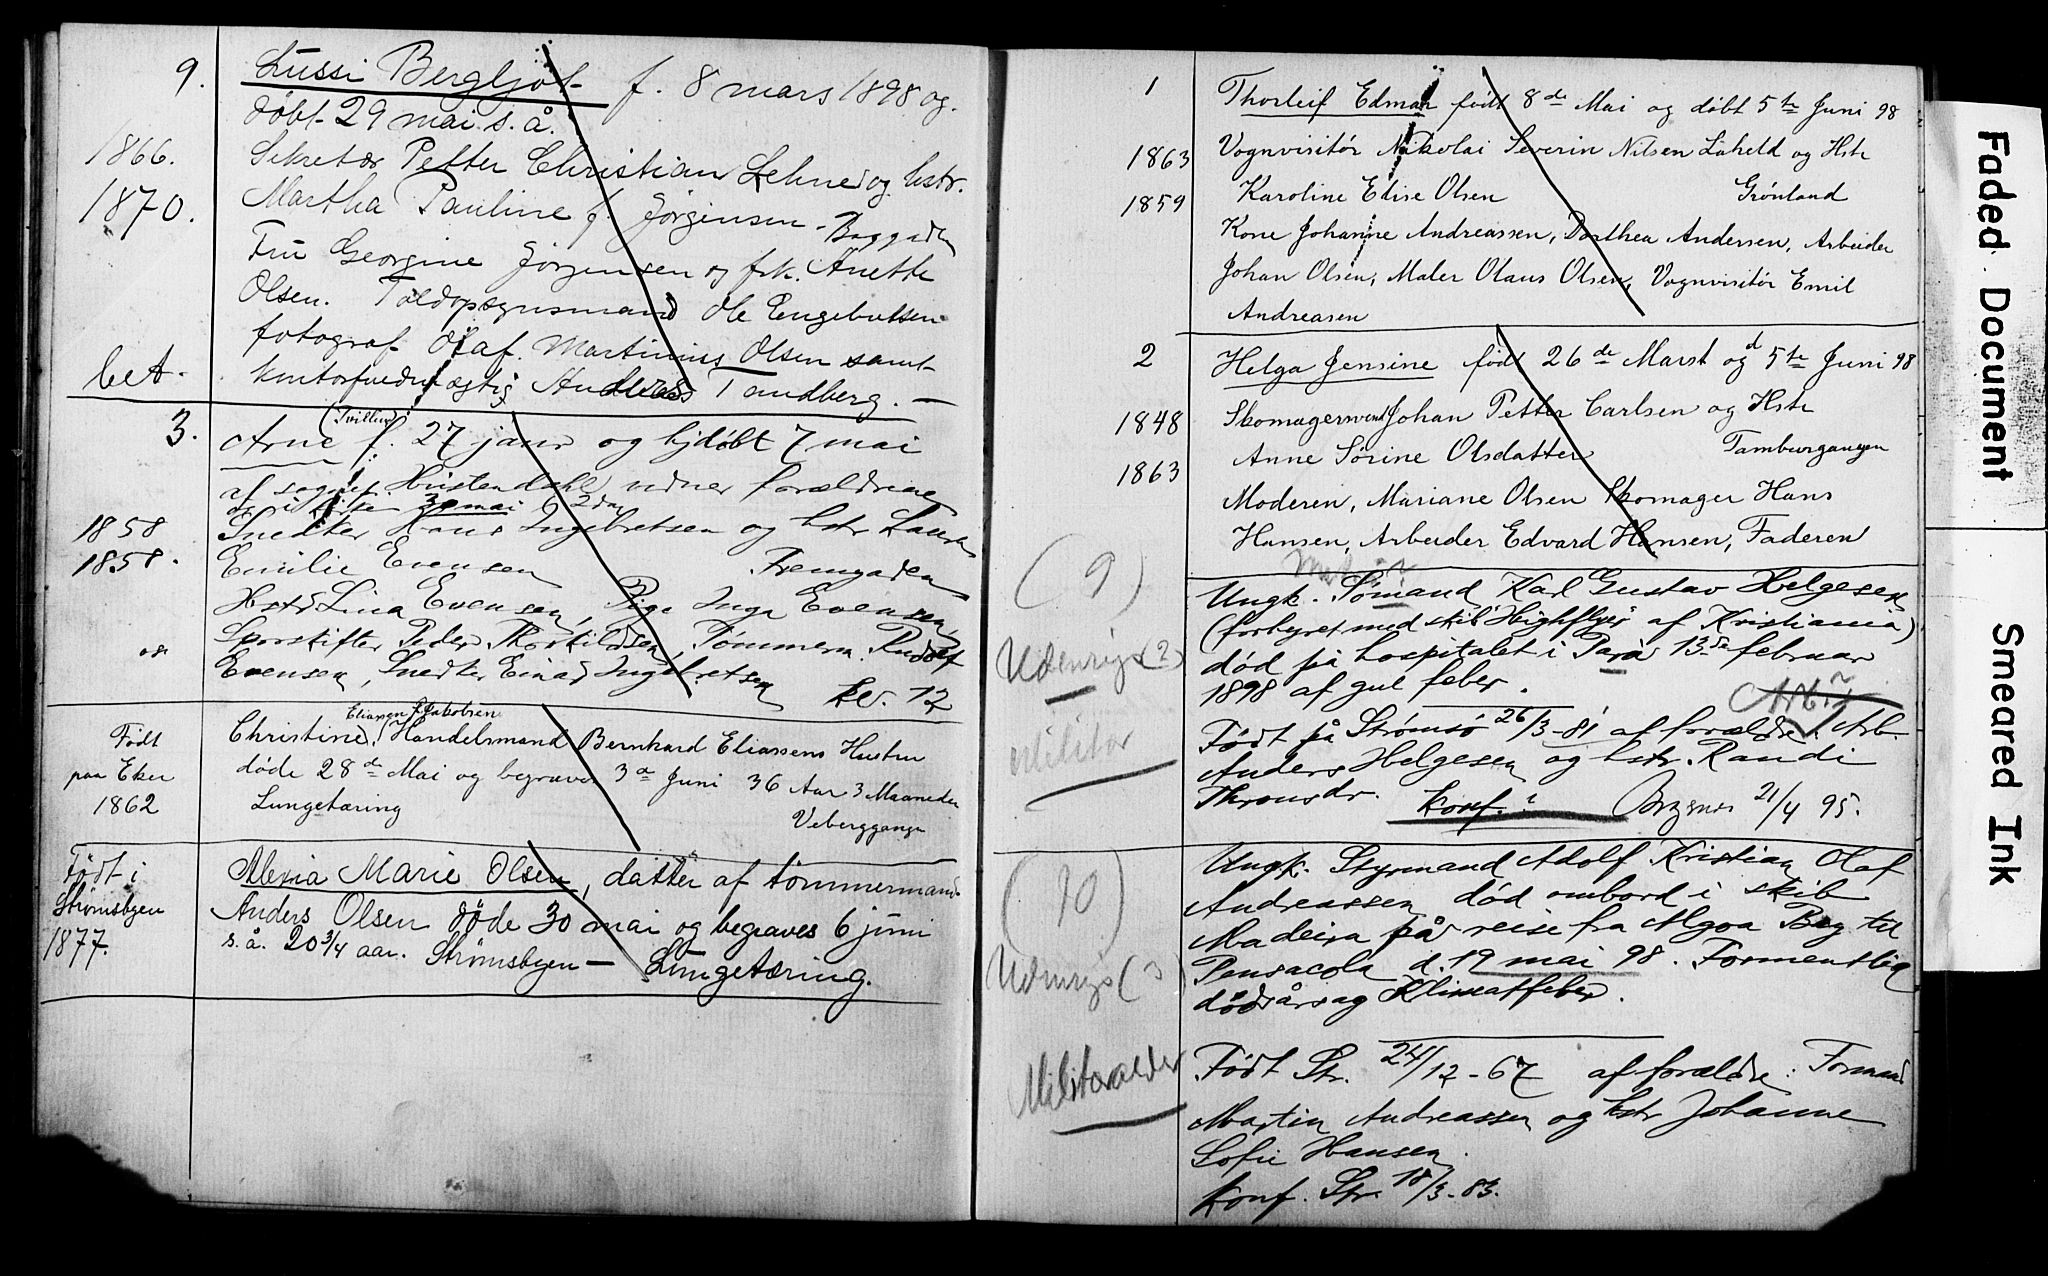 9. Lussi Bergljot f. 8 mars 1898 og
døbt 29 mai s. å.
1866. Sekretær Petter Christian Lehne og hstr.
1870. Martha Pauline f. Jörgensen - Baggaden
Fru Georgine Jörgensen og frk. Anette
Olsen. Toldopsynsmand Ole Engebretsen
fotograf Olaf Martinius Olsen samt
bet. kontorfuldmægtig Andreas Tandberg. —
(Tvilling)
3. Arne f. 27 janr og hjdøbt 7 mai
af sogpr. Hvistendahl vidner forældrene
og i kirken 30 mai 2den
1858 Snedker Hans Ingebretsen og hstr Laura
1858. Emilie Evensen Tremgaden
Hstr Lina Evensen, Pige Inga Evensen,
og Sporskifter Peder Thorkildsen, Tømmerm. Rudolf
Evensen, Snedker Einar Ingebretsen kl. 12
Eliassen f. Jakobsen
Født Christine, Handelsmand Bernhard Eliassens Hustru
paa Eker døde 28de Mai og begraves 3de Juni 36 Aar 3 Maaneder
1862 Lungetæring
Veberggangen
Født i Alexia Marie Olsen, datter af tømmermand
Strømsbyen Anders Olsen døde 30 mai og begraves 6 juni
1877. s. å. 20 3/4 aar. Strømsbyen — Lungetæring.
1 Thorleif Edmar født 8de Mai og døbt 5te Juni 98
1863 Vognvisitør Nikolai Severin Nilsen Laheld og Hstr
1859 Karoline Elise Olsen Grønland
Kone Johanne Andreassen, Dorthea Andersen, Arbeider
Johan Olsen, Maler Olaus Olsen, Vognvisitør Emil
Andreasen
2 Helga Jensine født 26de Marst og d 5te Juni 98
1848 Skomagersvend Johan Petter Carlsen og Hstr
1863 Anne Sørine Olsdatter Tamburgangen
Moderen, Mariane Olsen Skomager Hans
Hansen, Arbeider Edvard Hansen, Faderen
(9)
Ungk. Sømand Karl Gustav Helgesen
(forhyret med skib Highflyer af Kristiania)
Udenrigs (2) død på hospitalet i Pará 13de februar
1898 af gul feber.
Militær Født på Strømsø 26/3-81 af forældre: Arb.
Anders Helgesen og hstr. Randi
Thronsdr. Konf. ? Bragenes 21/4 95.
(10) Ungk. Styrmand Adolf Kristian Olaf
Andreassen død ombord i skib
Madeira på reise fra Algoa Bay til
Udenrigs (3) Pensacola d. 19 mai 98. Formentlig
dødsårsag Klimatfeber.
Militæralder Født Str. 24/12-67 af forældre: Formand
Martin Andreassen og hstr Johanne
Sofie Hansen
Konf. Str. 18/3-83.
Faded Document
Smeared Ink